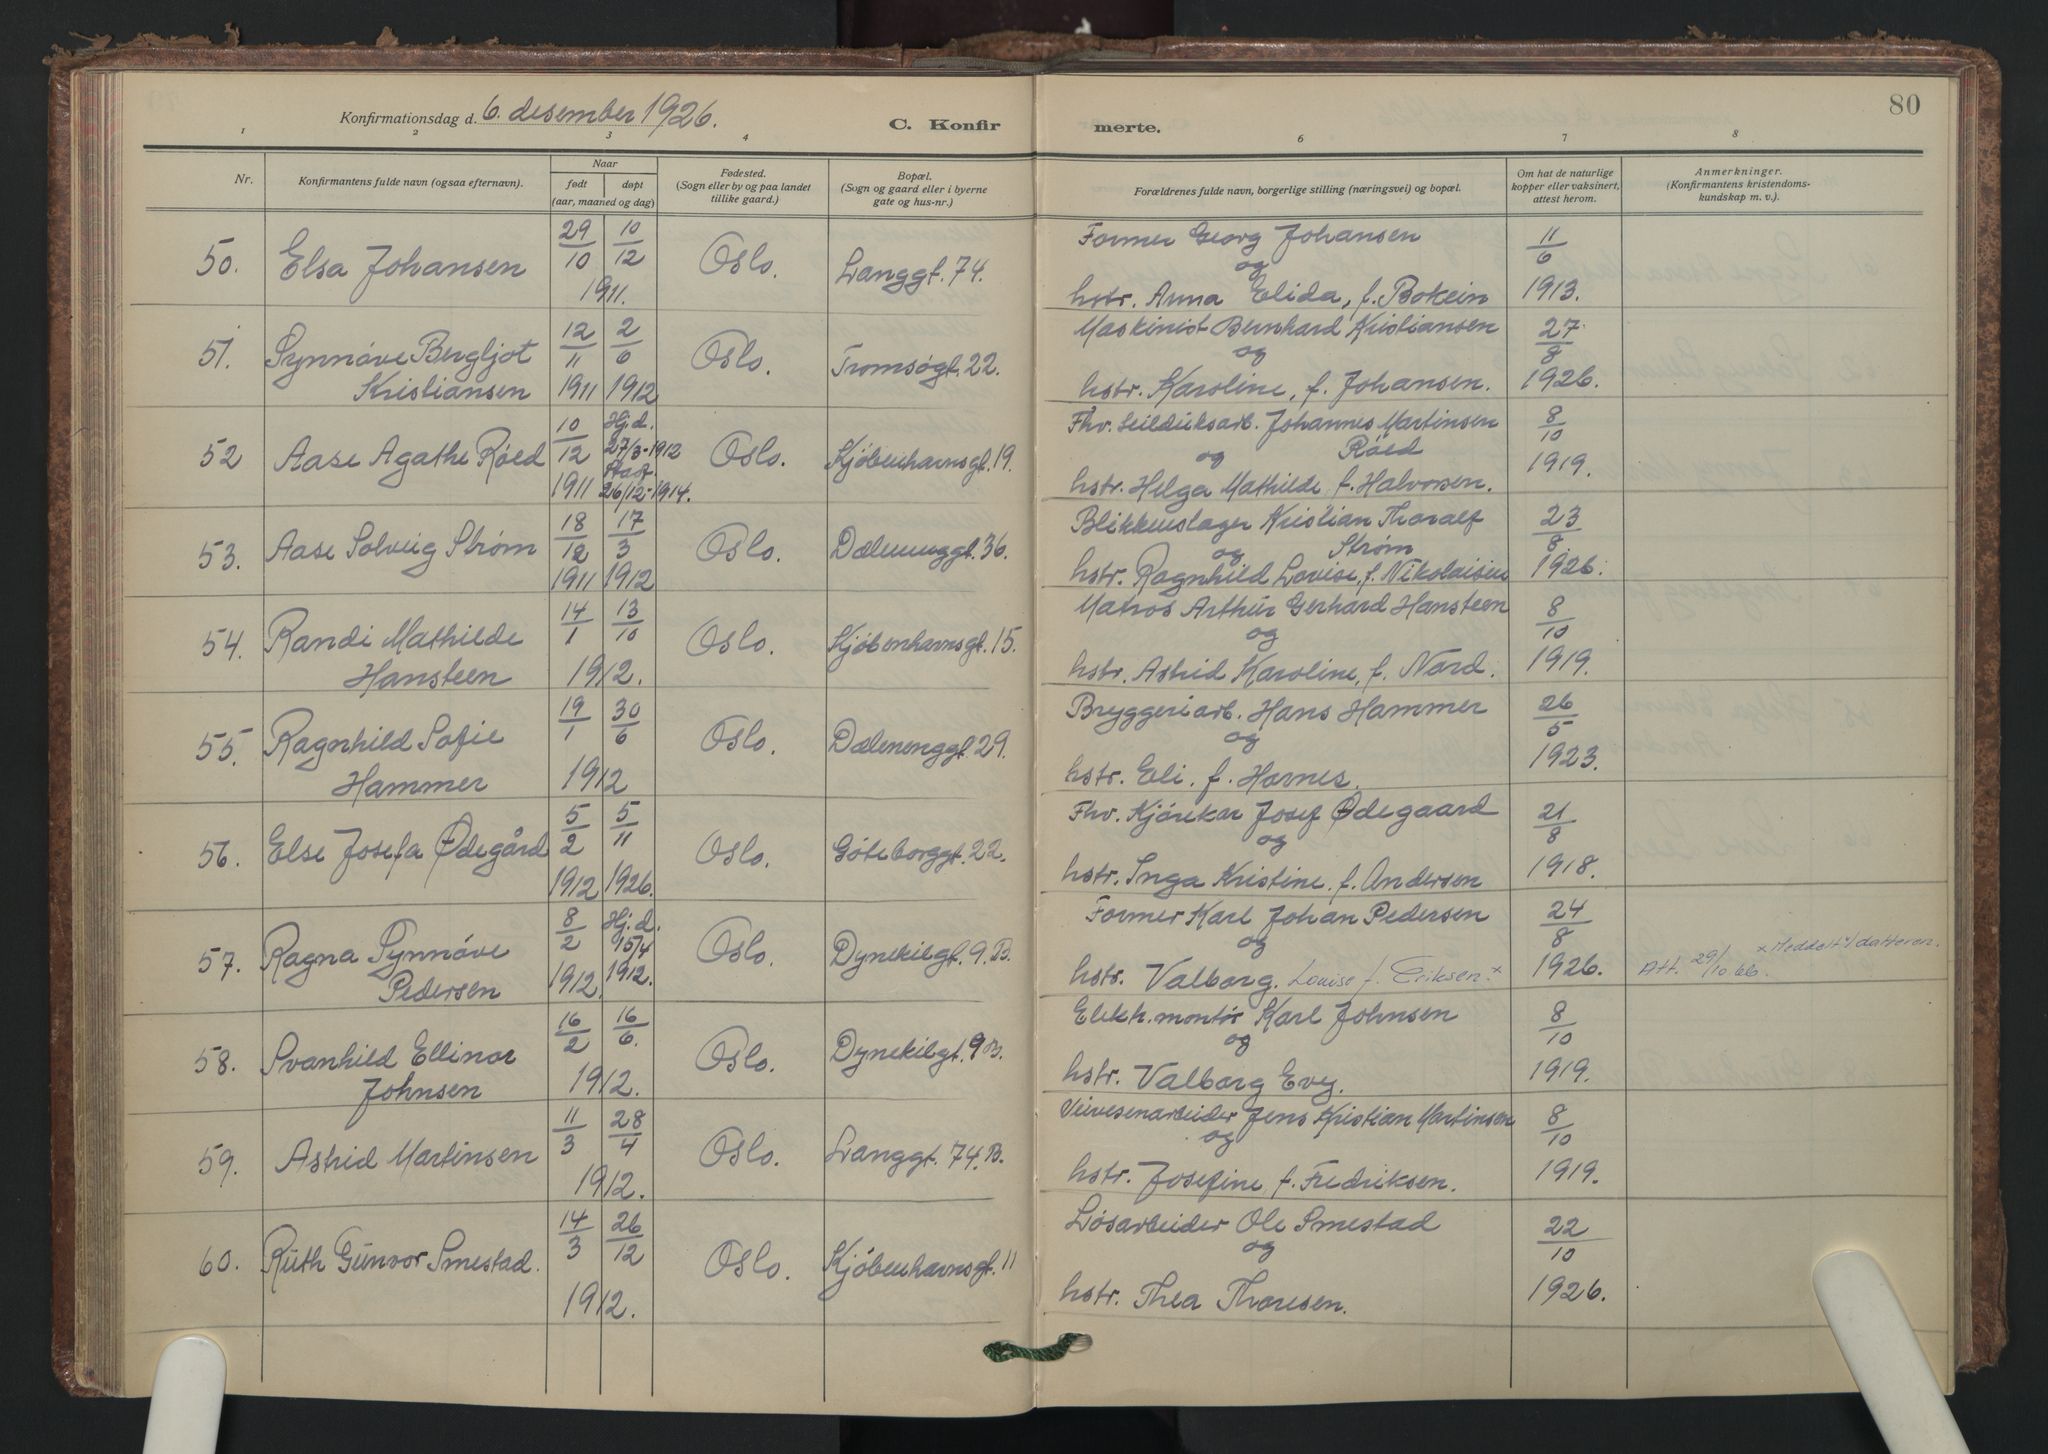 80
Konfirmationsdag d. 6. desember 1926.
C. Konfirmerte.
1 2 3 4 6 7 8
Nr. Konfirmantens fulde navn (ogsaa efternavn). Naar født døpt (aar, maaned og dag) Fødested. (Sogn eller by og paa landet tillike gaard.) Bopæl. (Sogn og gaard eller i byerne gate og hus-nr.) Forældrenes fulde navn, borgerlige stilling (næringsvei) og bopæl. Om hat de naturlige kopper eller vaksinert, attest herom. Anmerkninger. (Konfirmantens kristendomskundskap m. v.).
50. Elsa Johansen 29/10 10/12 1911. Oslo. Langgt. 74. Former Georg Johansen og hstr. Anna Elida, f. Bokein 11/6 1913.
51. Synnöve Bergljot Kristiansen 12/11 1911 2/6 1912 Oslo. Tromsøgt. 22. Maskinist Bernhard Kristiansen og hstr. Karoline, f. Johansen. 27/8 1926.
52 Aase Agathe Röed 10/12 1911 Hj.d. 27/3-1912 Stadf. 26/12-1914. Oslo. Kjöbenhavnsgt. 19. Fhv. seilduksarb. Johannes Martinsen Röed og hstr. Helga Mathilde f. Halvorsen. 8/10 1919.
53. Aase Solveig Strøm 18/12 1911 17/3 1912 Oslo. Dælenenggt. 36. Blikkenslager Kristian Thoralf Strøm og hstr. Ragnhild Lovise, f. Nikolaisen 23/8 1926.
54. Randi Mathilde Hansteen 14/1 13/10 1912. Oslo. Kjöbenhavnsgt. 15. Matros Arthur Gerhard Hansteen og hstr. Astrid Karoline, f. Nord. 8/10 1919.
55. Ragnhild Sofie Hammer 19/1 30/6 1912 Oslo. Dælenenggt. 29. Bryggeriarb. Hans Hammer og hstr. Eli. f. Hovnes. 26/5 1923.
56. Else Josefa Ødegård 5/2 1912 5/11 1926. Oslo. Göteborggt. 22. Fhv. Kjörekar Josef Ødegaard og hstr. Inga Kristine. f. Andersen 21/8 1918.
57. Ragna Synnöve Pedersen 8/2 1912 Hj.d. 15/4 1912. Oslo. Dynekilgt. 9. B. Former Karl Johan Pedersen og hstr. Valborg. Louise f. Eriksen. x 24/8 1926. Att. 29/10 66. x Meddelt v/datteren.
58. Svanhild Ellinor Johnsen 16/2 16/6. 1912. Oslo. Dynekilgt. 9 B. Elektr. montör Karl Johnsen og hstr. Valborg Evy. 8/10 1919.
59. Astrid Martinsen 11/3 28/4 1912. Oslo. Langgt. 74. B. Veivesenarbeider Jens Kristian Martinsen og hstr. Josefine f. Fredriksen. 8/10 1919.
60. Ruth Gunvor Smestad. 14/3 26/12 1912. Oslo. Kjöbenhavnsgt. 11 Løsarbeider Ole Smestad og hstr. Thea Thoresen. 22/10 1926.